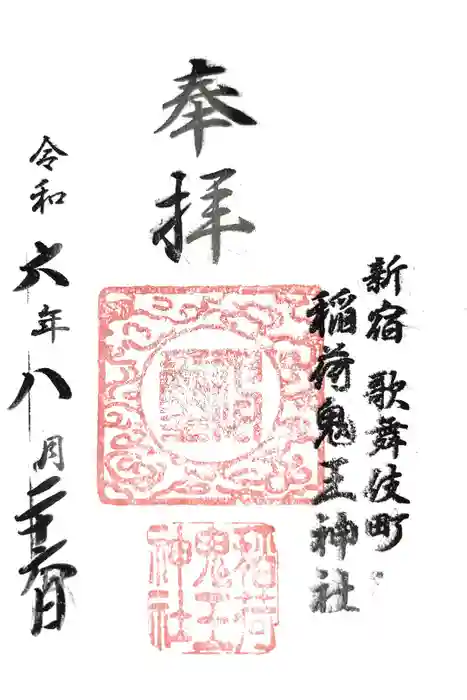 新宿 歌舞伎町
稲荷鬼王神社
奉拝
令和六年八月二十六日
稲荷
鬼王
神社